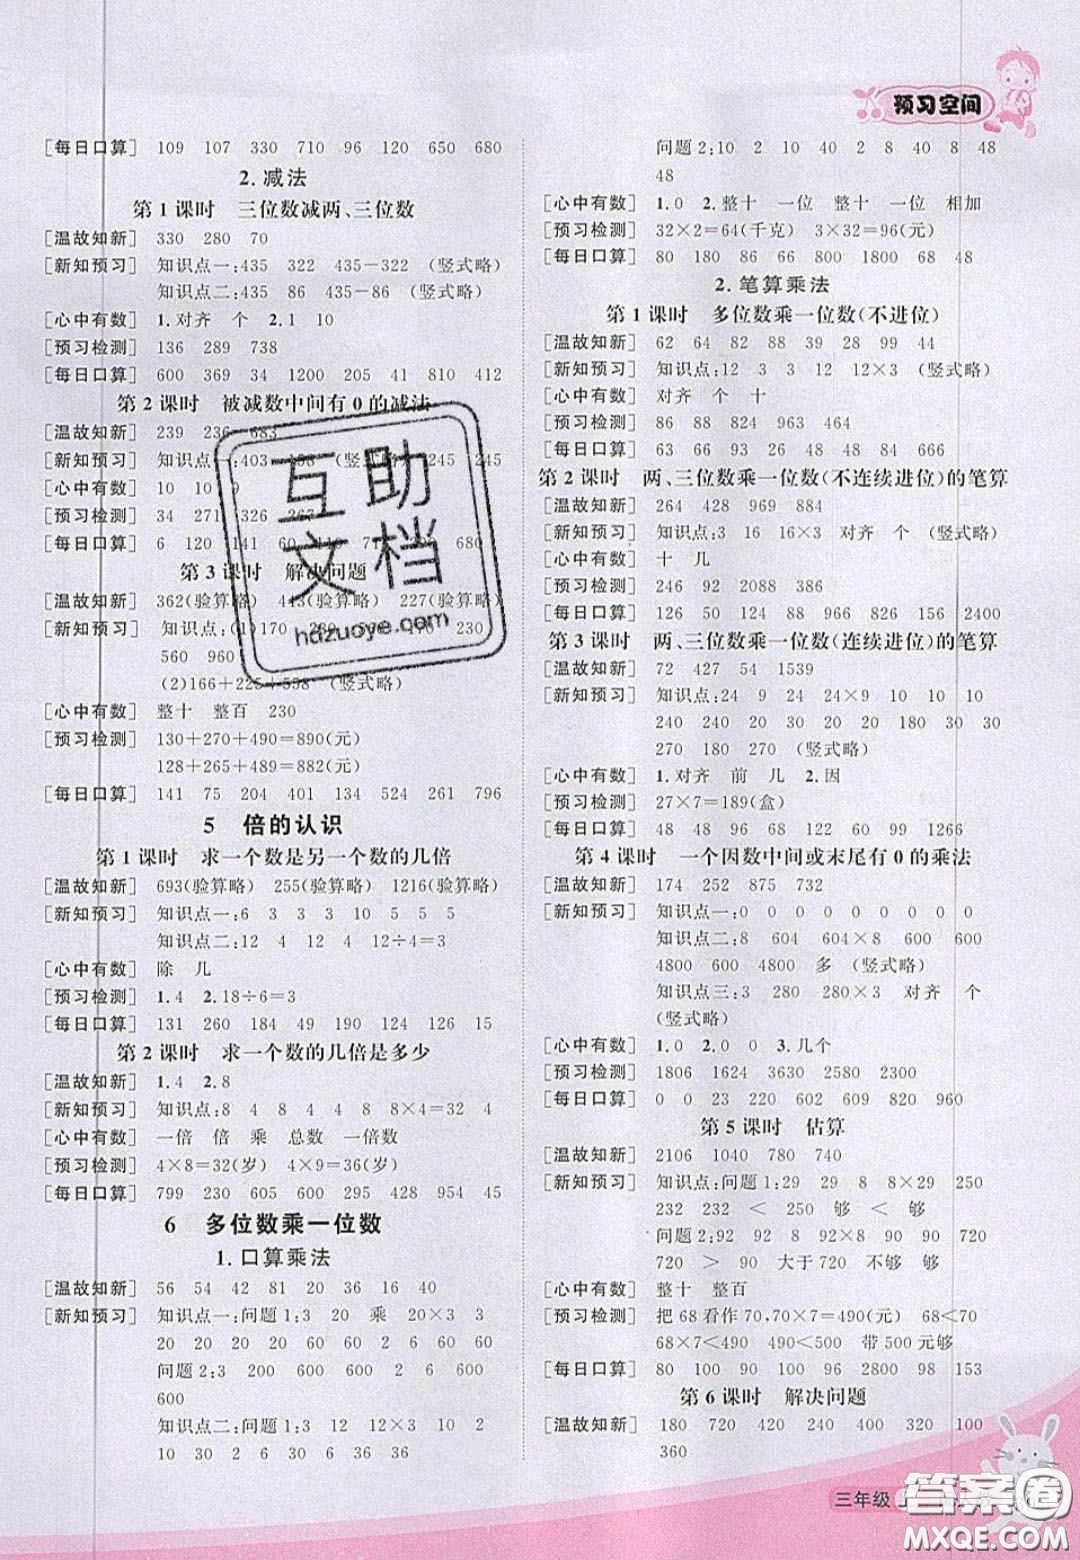 预习空间
[每日口算] 109 107 330 710 96 120 650 680
2.减法
第1课时 三位数减两、三位数
[温故知新] 330 280 70
[新知预习] 知识点一:435 322 435-322 (竖式略)
知识点二:435 86 435-86 (竖式略)
[心中有数] 1.对齐 个 2.1 10
[预习检测] 136 289 738
[每日口算] 600 369 34 1200 205 41 810 412
第2课时 被减数中间有0的减法
[温故知新] 239 236 683
[新知预习] 知识点:403 158 (竖式略) 245 245
[心中有数] 10 10 9
[预习检测] 34 271 326 267
[每日口算] 6 120 141 60 680
第3课时 解决问题
[温故知新] 362(验算略) 443(验算略) 227(验算略)
[新知预习] 知识点:(1)170 230 490 230
560 960
(2)166+225+558 (竖式略)
[心中有数] 整十 整百 230
[预习检测] 130+270+490=890(元)
128+265+489=882(元)
[每日口算] 141 75 204 400 104 231 260 796
5 倍的认识
第1课时 求一个数是另一个数的几倍
[温故知新] 693(验算略) 255(验算略) 1216(验算略)
[新知预习] 知识点一:6 3 3 3 10 5 5 5
知识点二:12 4 12 4 12÷4=3
[心中有数] 除 几
[预习检测] 1.4 2.18÷6=3
[每日口算] 131 260 184 49 190 124 126 15
第2课时 求一个数的几倍是多少
[温故知新] 1.4 2.8
[新知预习] 知识点:8 4 8 4 8 8×4=32 4
[心中有数] 一倍 倍 乘 总数 一倍数
[预习检测] 4×8=32(岁) 4×9=36(岁)
[每日口算] 799 230 605 600 295 428 954 45
6 多位数乘一位数
1.口算乘法
[温故知新] 56 54 42 81 20 36 16 40
[新知预习] 知识点一:问题1:3 20 乘 20×3 3
20 20 20 60 6 2 6 60 60
问题2:3 200 600 600 6 2 6 600
600
知识点二:问题1:3 12 12×3 10 2
10 30 2 6 30 6 36 36
问题2:10 2 10 40 2 8 40 8 48
48
[心中有数] 1.0 2.整十 一位 整十 一位 相加
[预习检测] 32×2=64(千克) 3×32=96(元)
[每日口算] 80 180 86 66 800 1800 68 48
2.笔算乘法
第1课时 多位数乘一位数(不进位)
[温故知新] 62 64 82 88 39 28 99 44
[新知预习] 知识点:12 3 3 12 12×3 (竖式略)
[心中有数] 对齐 个 十
[预习检测] 86 88 824 963 464
[每日口算] 63 66 93 26 48 84 48 666
第2课时 两、三位数乘一位数(不连续进位)的笔算
[温故知新] 264 428 969 884
[新知预习] 知识点:3 16 16×3 对齐 个 (竖式略)
[心中有数] 十 几
[预习检测] 246 92 2088 386
[每日口算] 126 50 124 88 966 826 156 2400
第3课时 两、三位数乘一位数(连续进位)的笔算
[温故知新] 72 427 54 1539
[新知预习] 知识点:24 9 24 24×9 10 10 10
240 240 20 30 20 20 180 30 30
270 180 270 (竖式略)
[心中有数] 1.对齐 前 几 2.因
[预习检测] 27×7=189(盒)
[每日口算] 48 48 96 68 122 60 99 1266
第4课时 一个因数中间或末尾有0的乘法
[温故知新] 174 252 875 732
[新知预习] 知识点一:0 0 0 0 0 0 0 0
知识点二:8 604 604×8 600 600
4800 600 4800 多 (竖式略)
知识点三:3 280 280×3 对齐 个
(竖式略)
[心中有数] 1.0 2.0 0 3.几个
[预习检测] 1806 1624 3630 2580 2300
[每日口算] 0 0 23 220 602 609 820 960
第5课时 估算
[温故知新] 2106 1040 780 740
[新知预习] 知识点:问题1:29 29 8 8×29 250
232 232 < 250 够 够
问题2:92 92 8 92×8 90 90 720
720 > 90 大于720 不够 够
[心中有数] 整十 整百
[预习检测] 把68看作70,70×7=490(元) 68<70
68×7<490 490<500 带500元够
[每日口算] 80 100 90 100 96 2800 98 153
第6课时 解决问题
[温故知新] 180 720 420 240 400 320 100
360
三年级上
互助文档
hdzuoye.com
答案圈
MXQE.COM